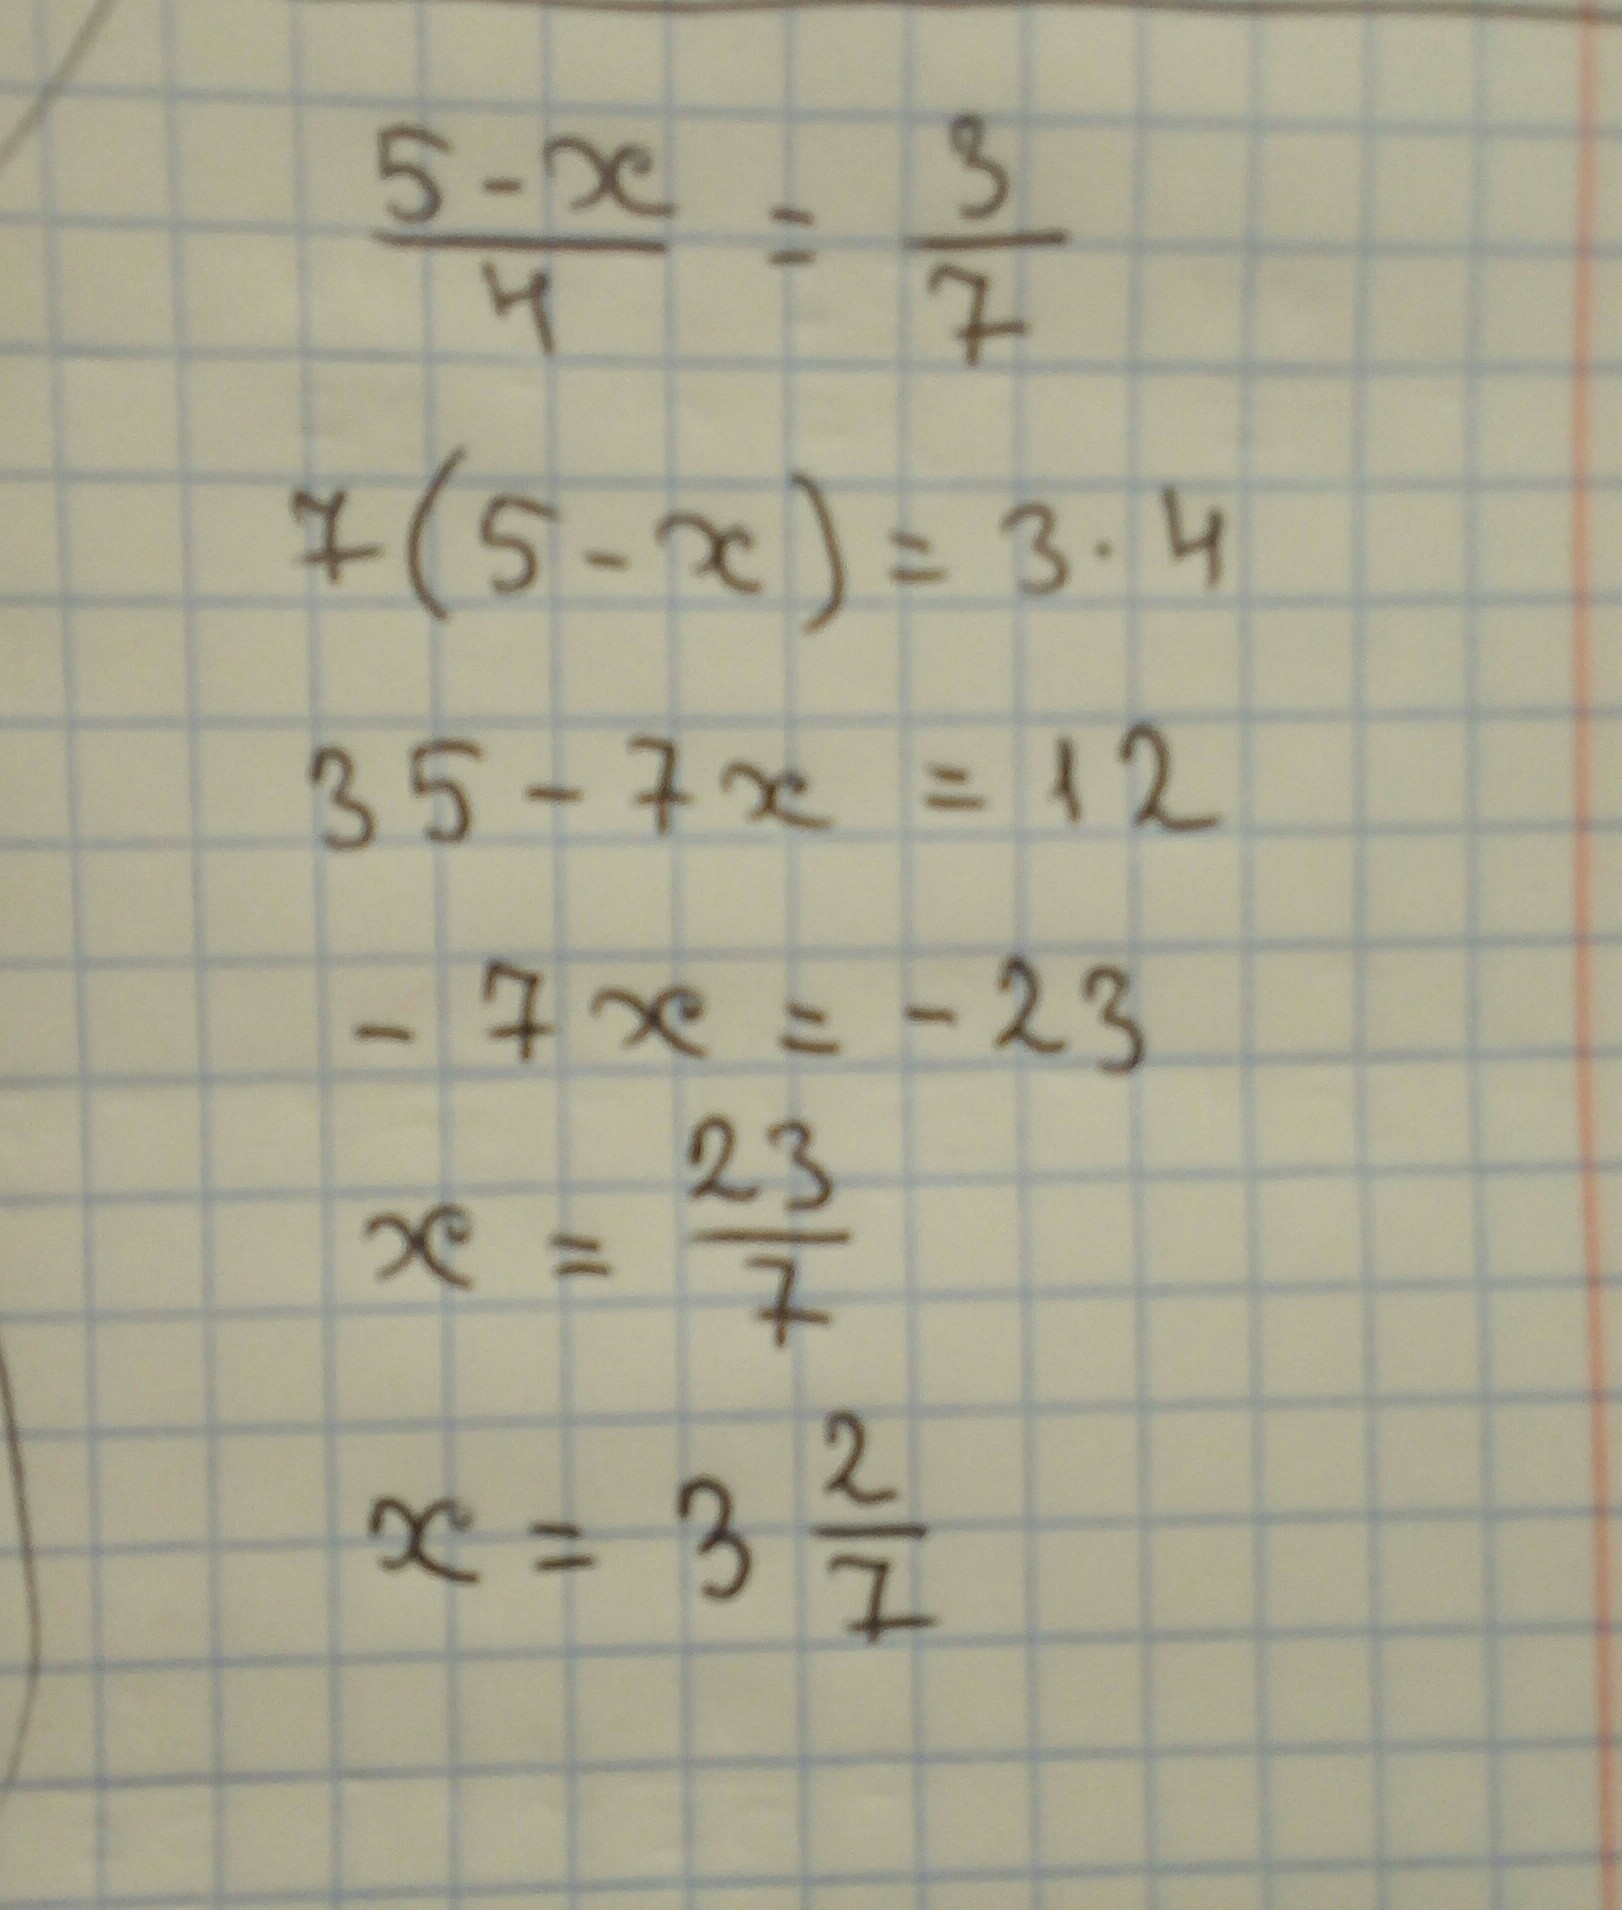 (5-x)/4 = 3/7
7(5-x) = 3·4
35-7x = 12
-7x = -23
x = 23/7
x = 3 2/7